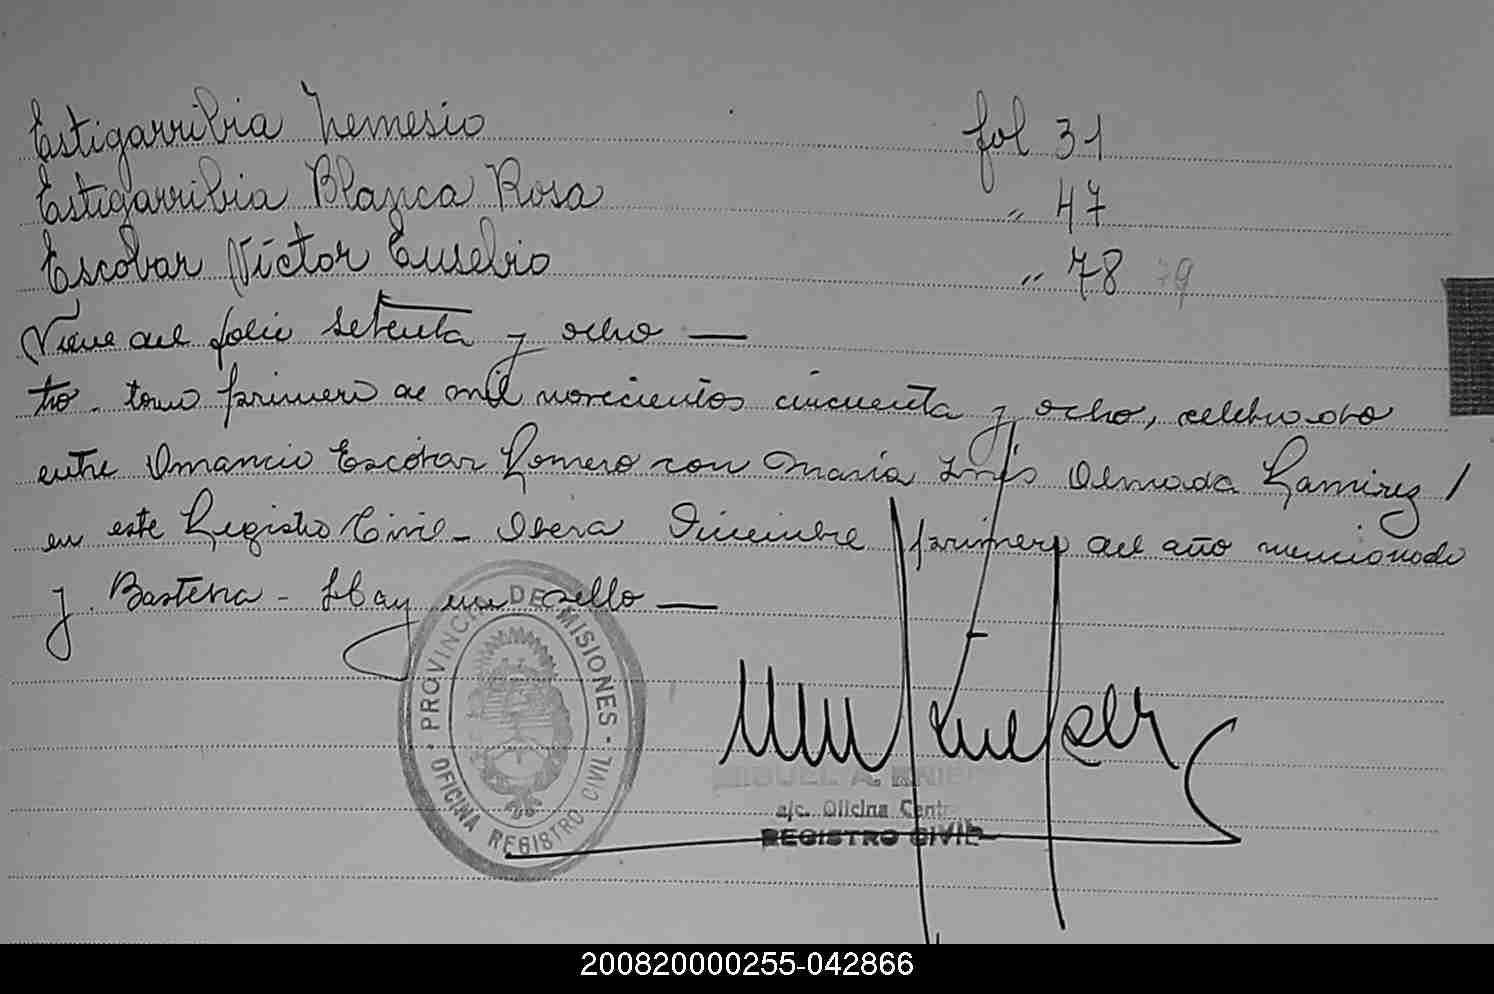 Estigarribia Nemesio fol 31
Estigarribia Blanca Rosa " 47
Escobar Víctor Eusebio " 78 79
Viene del folio setenta y ocho —
tro. tomo primero de mil novecientos cincuenta y ocho, celebrado
entre Amancio Escobar Romero con María Inés Almada Ramirez /
en este Registro Civil - Diciembre primero del año mencionado
J. - Hay un sello —
PROVINCIA DE MISIONES - OFICINA REGISTRO CIVIL -
MIGUEL A.
a/c. Oficina
REGISTRO CIVIL
200820000255-042866